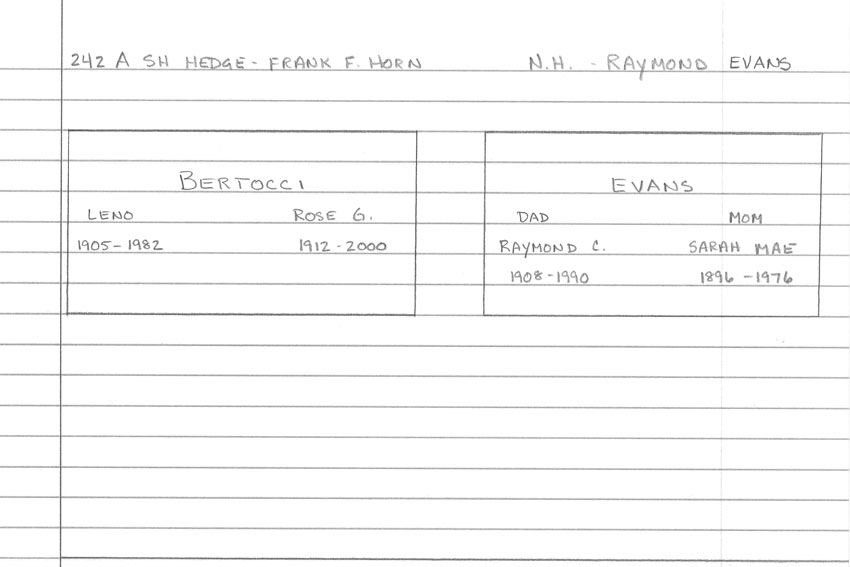 242 A SH HEDGE - FRANK F. HORN
N.H. - RAYMOND EVANS
BERTOCCI
LENO ROSE G.
1905 - 1982 1912 - 2000
EVANS
DAD MOM
RAYMOND C. SARAH MAE
1908 - 1990 1896 - 1976